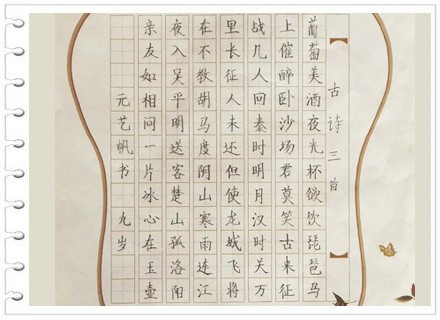 古诗三首
葡萄美酒夜光杯欲饮琵琶马
上催醉卧沙场君莫笑古来征
战几人回秦时明月汉时关万
里长征人未还但使龙城飞将
在不教胡马度阴山寒雨连江
夜入吴平明送客楚山孤洛阳
亲友如相问一片冰心在玉壶
元艺帆书 九岁